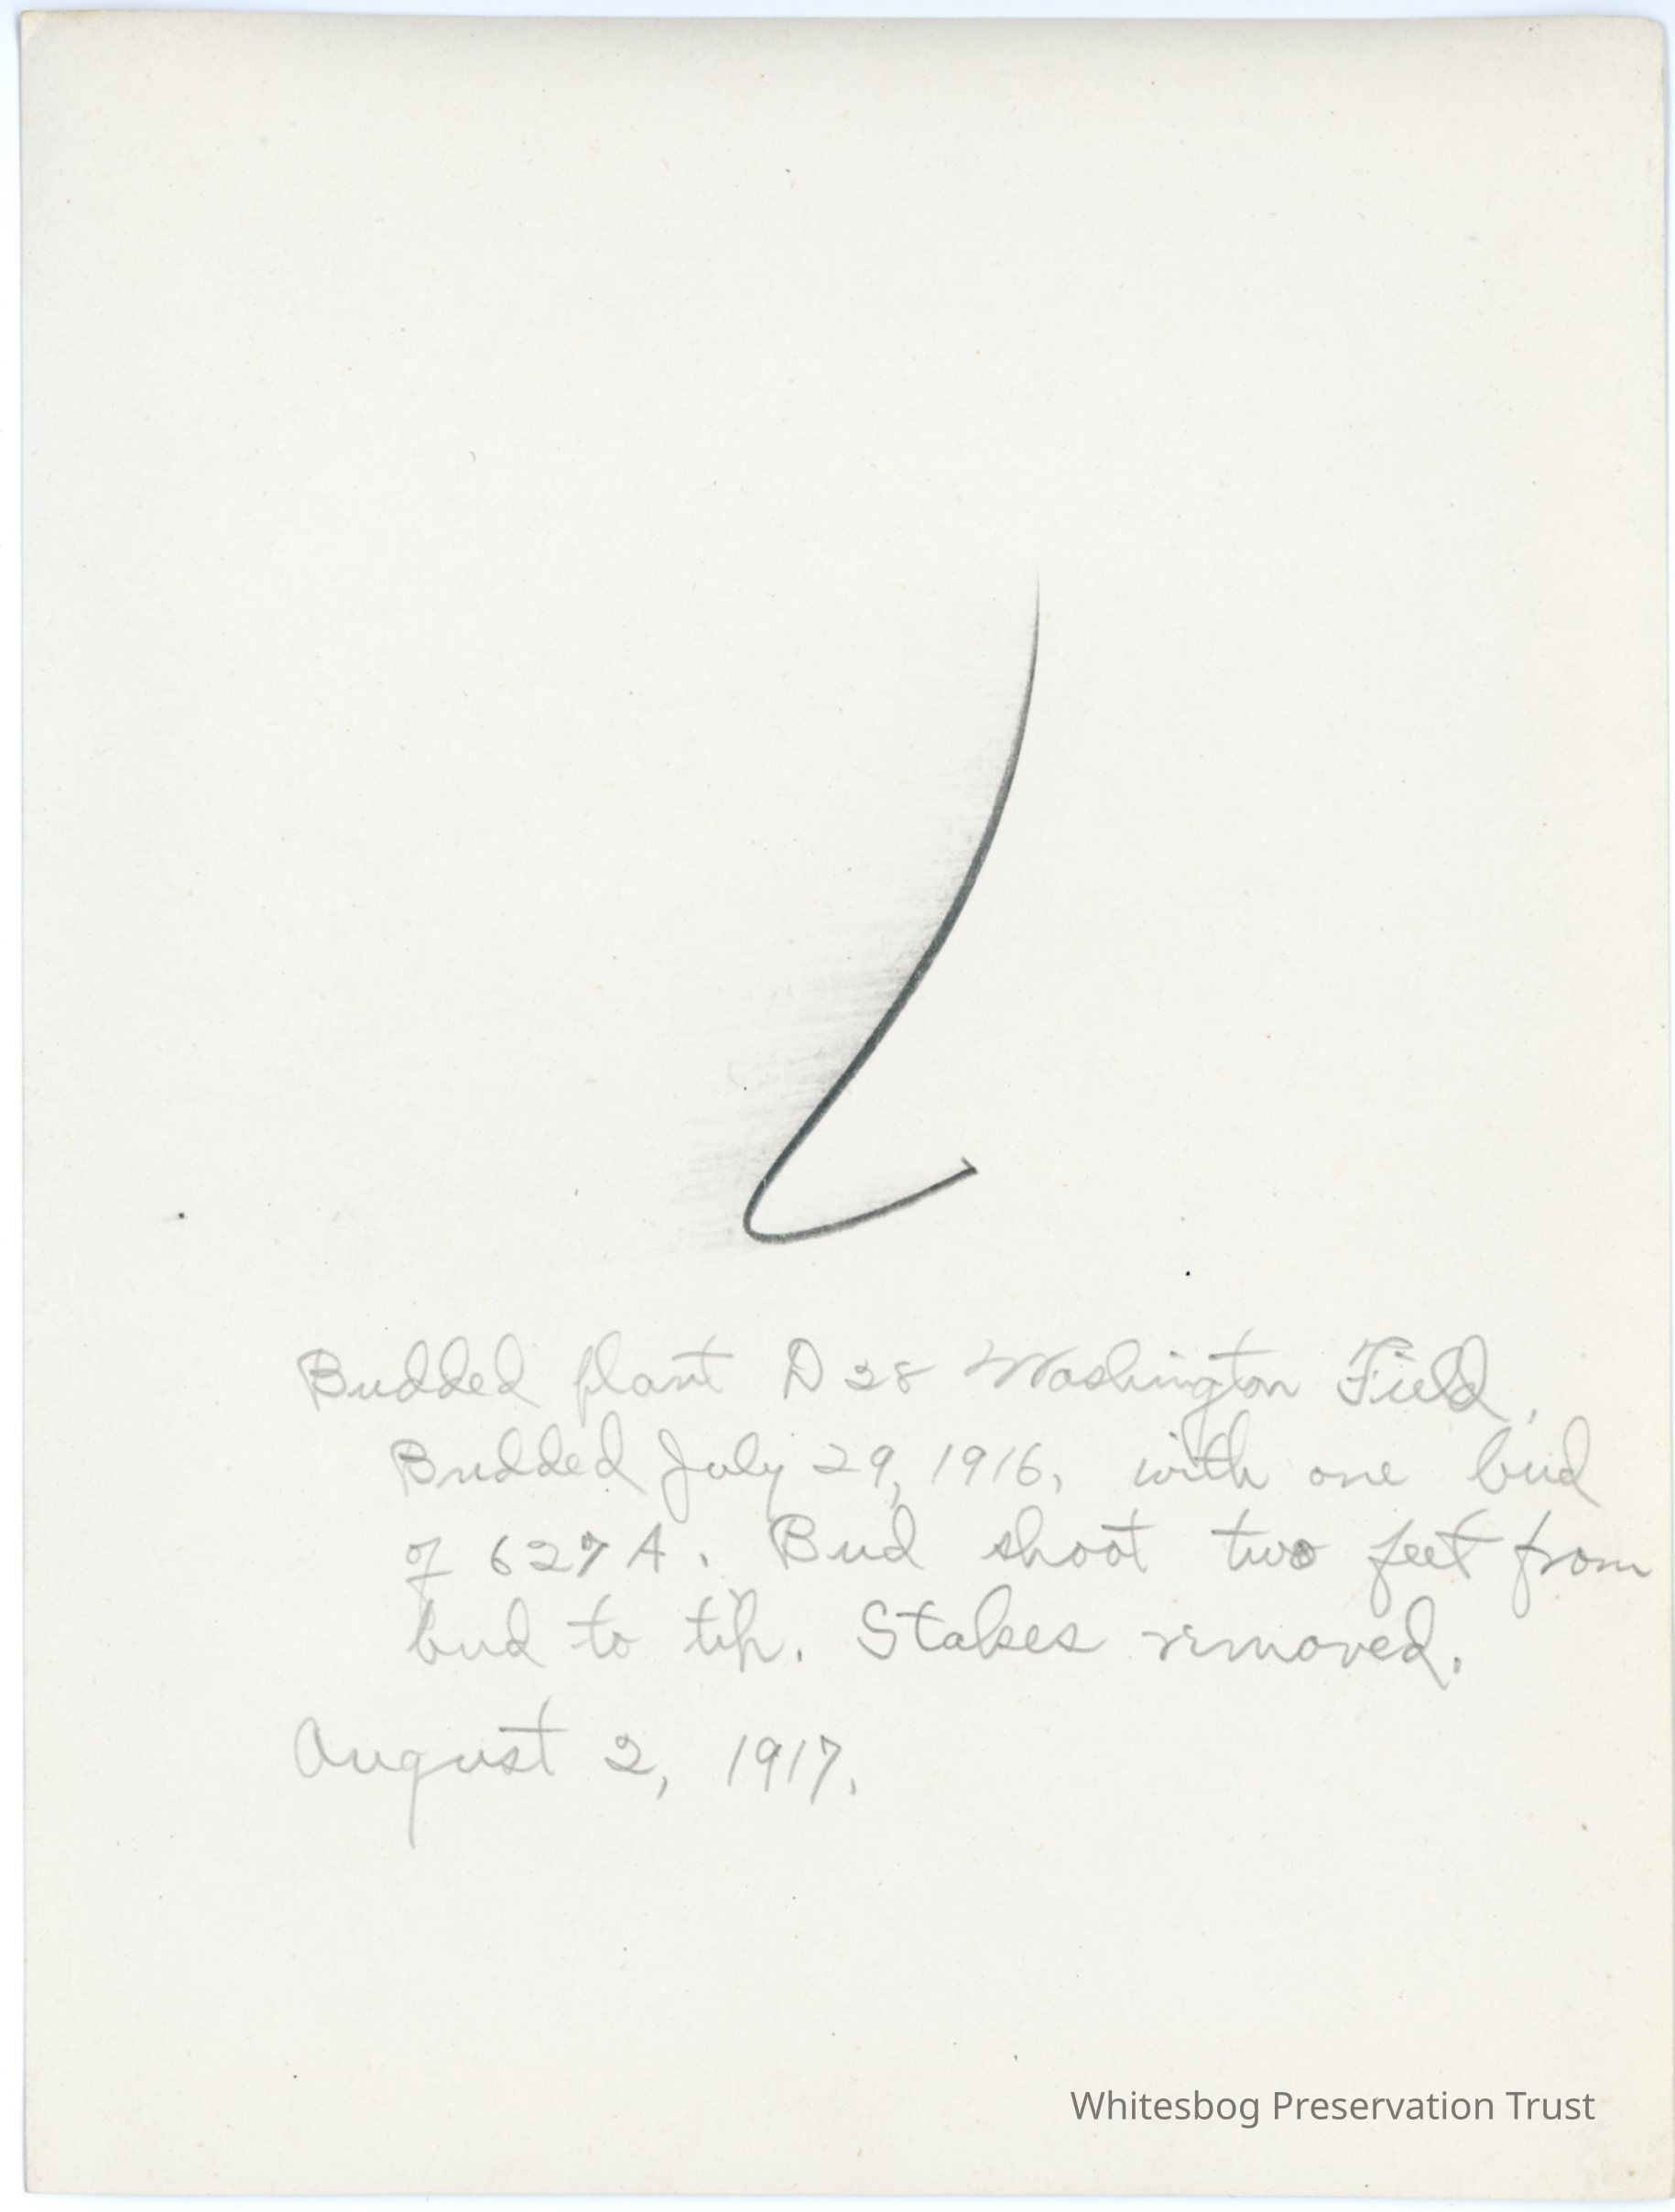 Budded plant D28 Washington Field,
Budded July 29, 1916, with one bud
of 627A. Bud shoot two feet from
bud to tip. Stakes removed.
August 2, 1917.
Whitesbog Preservation Trust